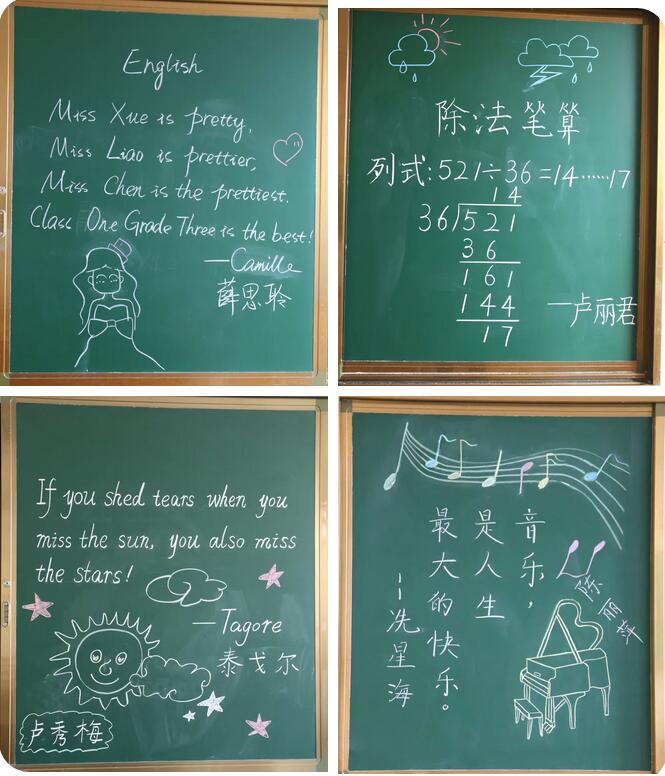 English
Miss Xue is pretty,
Miss Liao is prettier,
Miss Chen is the prettiest.
Class One Grade Three is the best!
—Camille
薛思聆
除法笔算
列式:521÷36=14……17
14
36521
36
161
144
17
—卢丽君
If you shed tears when you
miss the sun, you also miss
the stars!
—Tagore
泰戈尔
卢秀梅
音乐，
是人生
最大的快乐。
--冼星海
陈丽萍